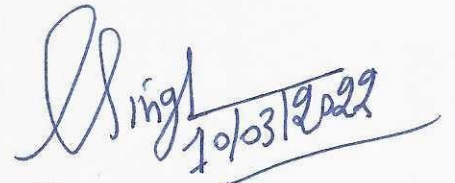 Singh
10/03/2022